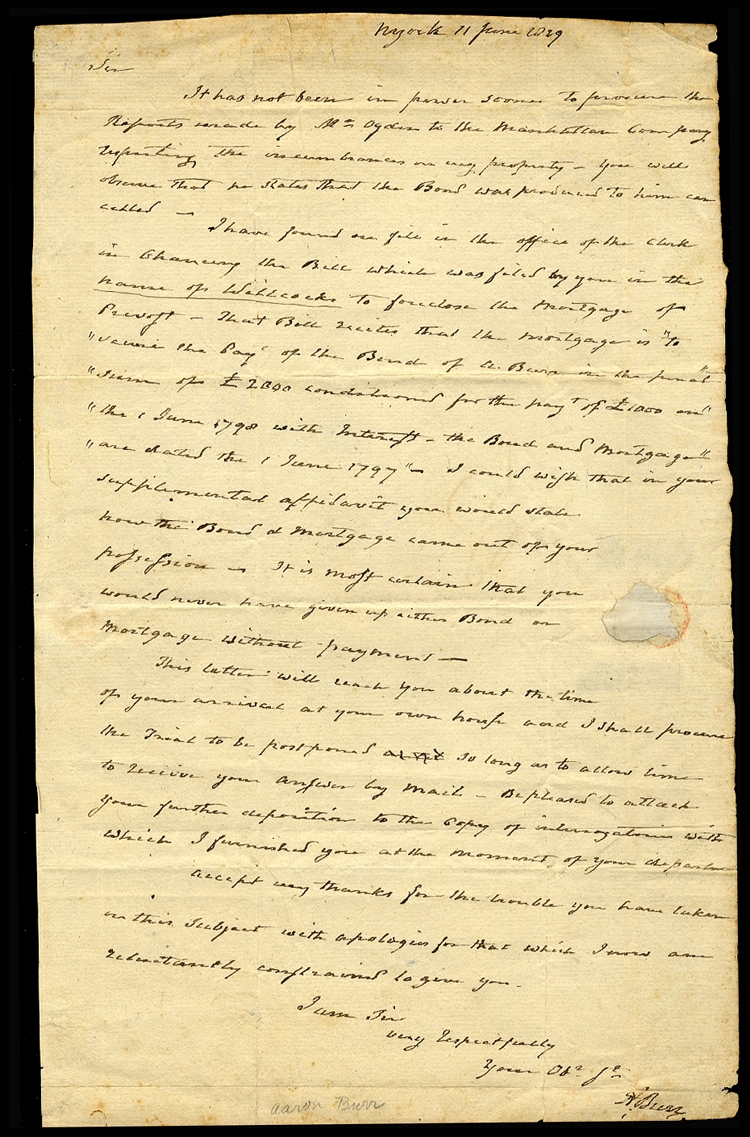 NYork 11 June 1829
Sir
It has not been in power sooner to procure the
Reports made by Mr Ogden to the Manhattan Company
respecting the incumbrances on my property – you will
observe that he states that the Bond was produced to him can
celled –
I have found on file in the office of the Clerk
in Chancery the Bill which was filed by you in the
name of Willcocks to foreclose the Mortgage of
Prevost – That Bill recites that the mortgage is "to
"secure the Payt of the Bond of A. Burr in the penal"
"sum of £2000 conditioned for the payt of £1000 on"
"the 1 June 1798 with Interest – the Bond and Mortgage"
"are dated the 1 June 1797" – I could wish that in your
supplemental affidavit you would state
how the Bond & Mortgage came out of your
possession – It is most certain that you
would never have given up either Bond or
Mortgage without payment –
This letter will reach you about the time
of your arrival at your own house and I shall procure
the Trial to be postponed so long as to allow time
to receive your answer by mail – Be pleased to attach
your further deposition to the Copy of interrogatories with
which I furnished you at the moment of your departure
accept my thanks for the trouble you have taken
in this subject with apologies for that which I now am
reluctantly constrained to give you.
I am Sir
very respectfully
Your Obt St
A. Burr
aaron Burr